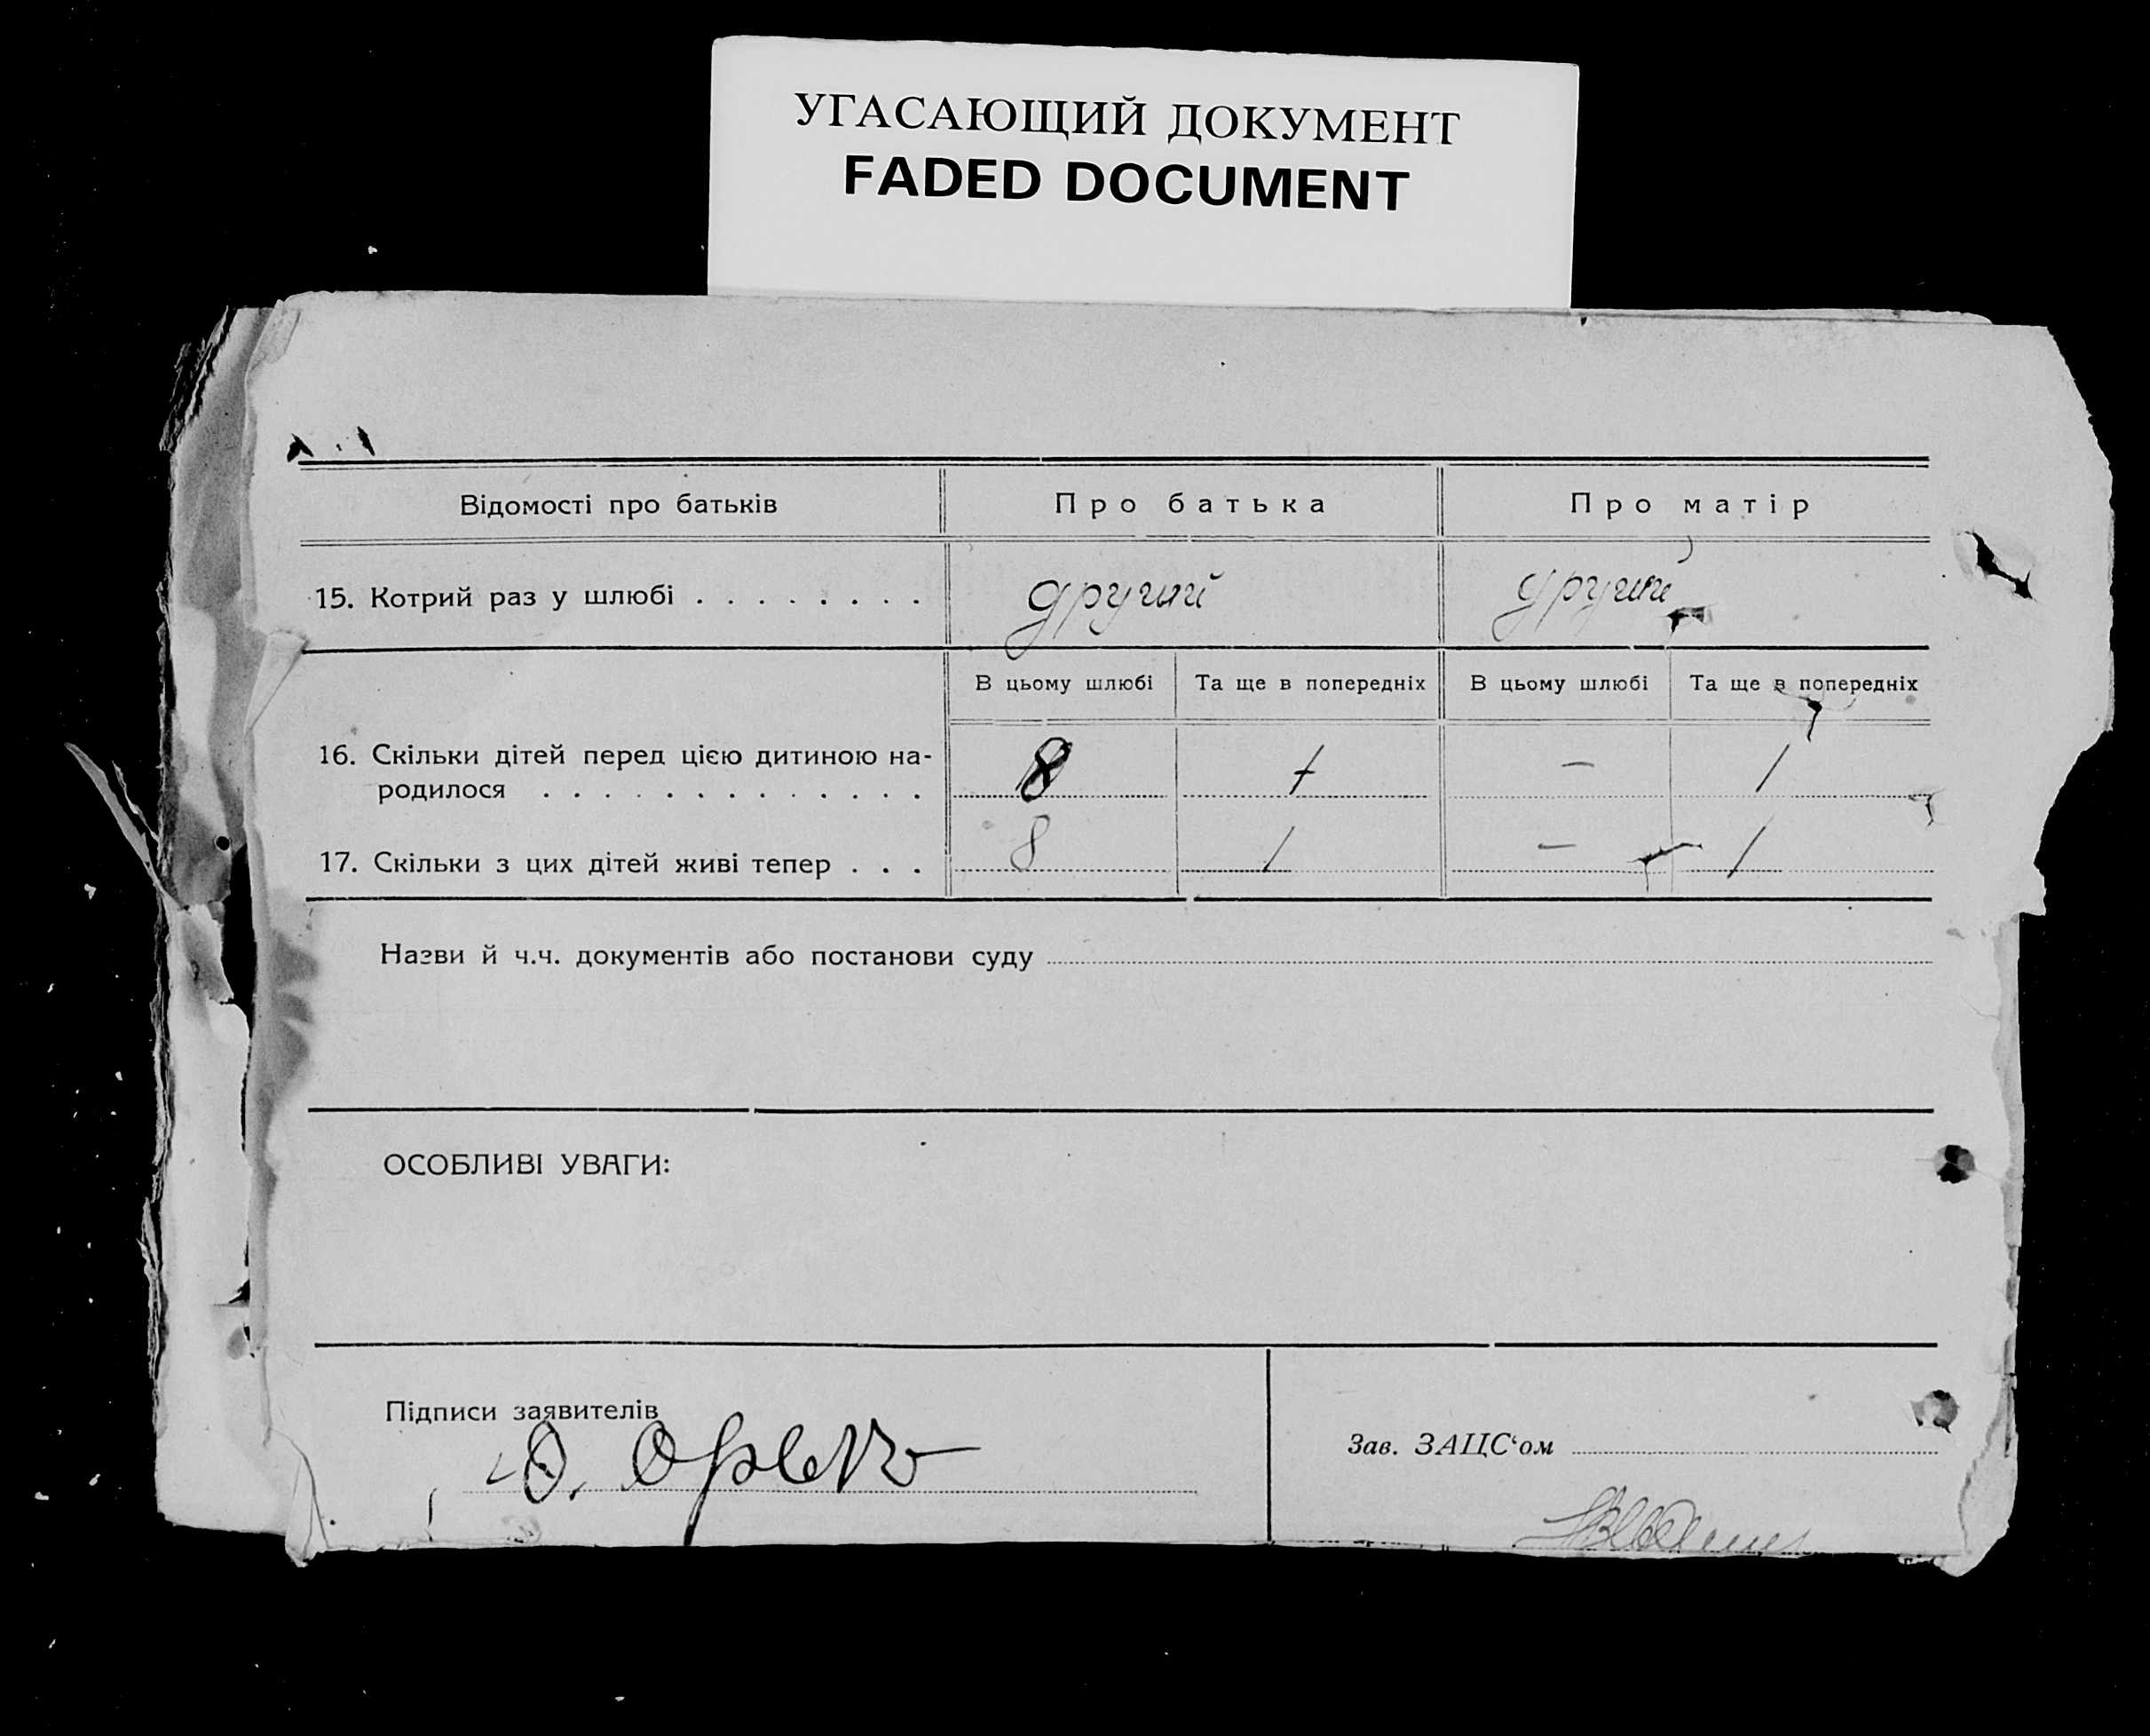 УГАСАЮЩИЙ ДОКУМЕНТ
FADED DOCUMENT
Відомості про батьків Про батька Про матір
15. Котрий раз у шлюбі . . . . . . . . другий другий
В цьому шлюбі Та ще в попередніх В цьому шлюбі Та ще в попередніх
16. Скільки дітей перед цією дитиною на-
родилося . . . . . . . . . . . . . 8 1 – 1
17. Скільки з цих дітей живі тепер . . . 8 1 – 1
Назви й ч.ч. документів або постанови суду
ОСОБЛИВІ УВАГИ:
Підписи заявителів
Зав. ЗАЦС‘ом